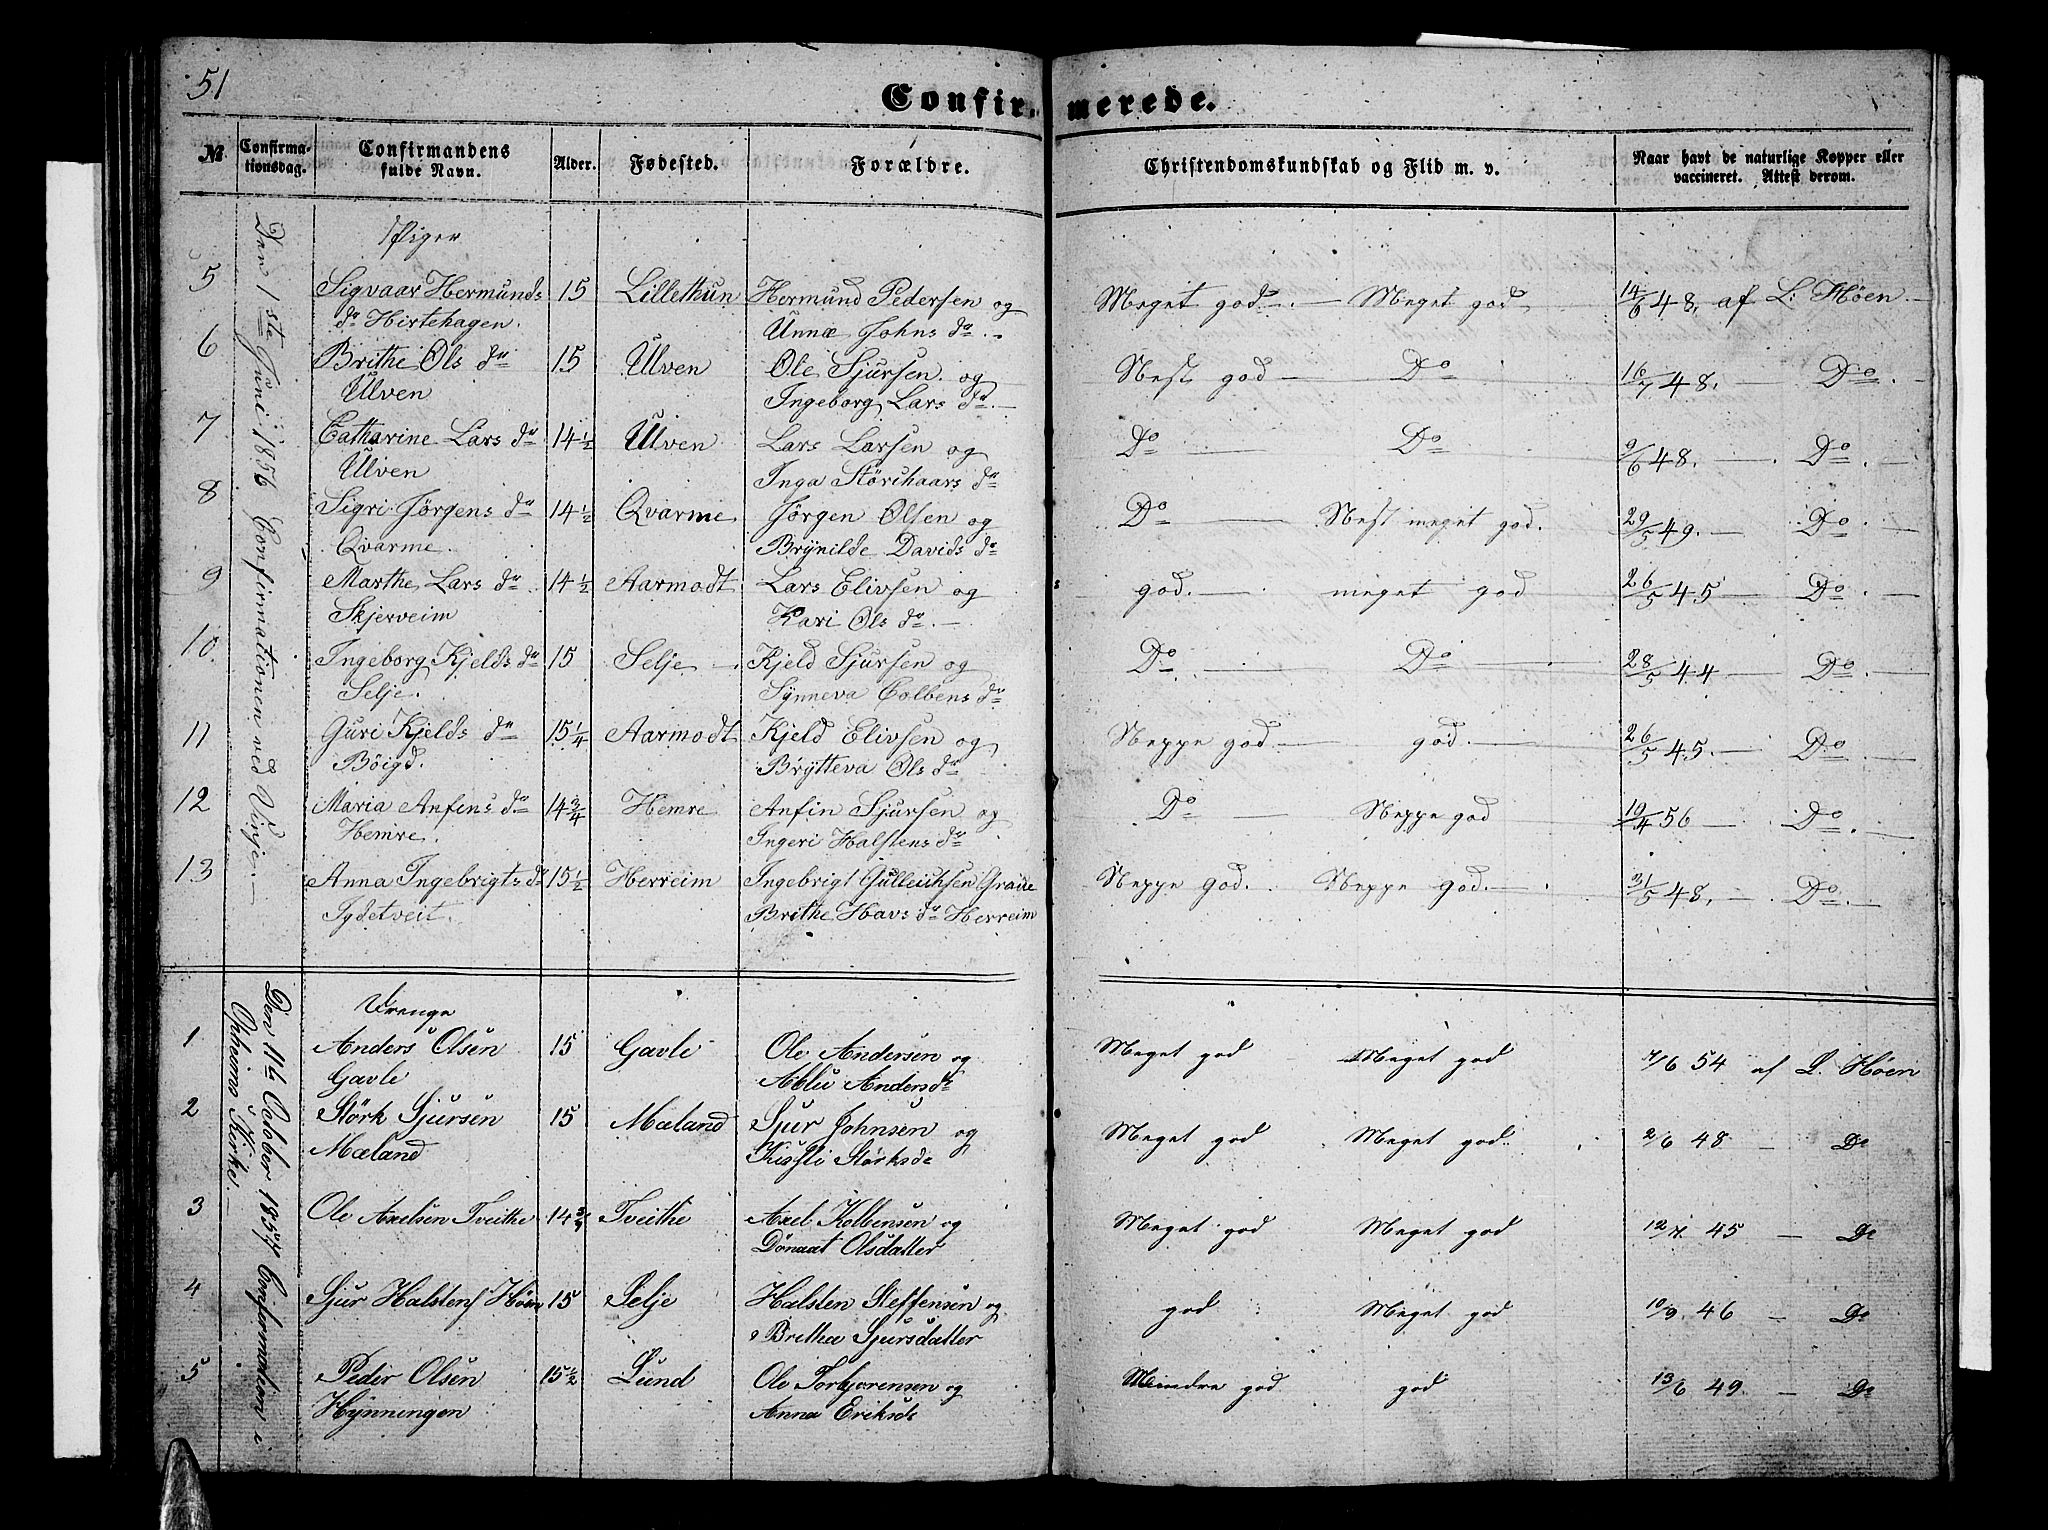 51
Confirmerede.
№ Confirmationsdag. Confirmandens fulde Navn. Alder. Fødested. Forældre. Christendomskundskab og Flid m. v. Naar havt de naturlige Kopper eller vaccineret. Attest derom.
Den 1ste Juni 1856 Confirmationen ved Vinje.
Piger
5 Sigvaar Hermunds 15 Lillethun Hermund Pedersen og Meget god. — Meget god 14/6 48, af L: Høen —
dr Hirtehagen. Unnæ Johns dr. —
6 Brithe Ols dr 15 Ulven Ole Sjursen og Nest god — Do 16/7 48. — Do. —
Ulven Ingeborg Lars dr. —
7 Catharine Lars dr 14½ Ulven Lars Larsen og Do — Do 9/6 48. — Do. —
Ulven Inga Störchaars dr
8 Sigri Jørgens dr 14½ Qvarme Jørgen Olsen og Do — Nest meget god. 29/5 49. — Do —
Qvarme. Brÿnilde Davids dr
9 Marthe Lars dr 14½ Aarmodt Lars Elivsen og god. — meget god 26/5 45 — Do. —
Skjerveim Kari Ols dr. —
10. Ingeborg Kjelds dr 15 Selje — Kjeld Sjursen og Do — Do — 28/5 44 — Do —
Selje. Sÿnneva Colbens dr
11 Guri Kjelds dr 15¼ Aarmodt Kjeld Elivsen og Neppe god. — god. — 26/5 45. — Do —
Böigd. Brÿtteva Ols dr
12 Maria Anfins dr 14¾ Hemre Anfin Sjursen og Do — Neppe god 10/4 56 — Do. —
Hemre. Ingeri Halstens dr
13 Anna Ingebrigts dr 15½ Herreim Ingebrigt Gulleichsen Graue Neppe god. Neppe god. — 31/5 48, — Do. —
Tydetveit. Brithe Havs dr Herreim
Den 11te October 1857 Confirmation i
Opheims Kirke. —
Drenge
1 Anders Olsen 15 Gavle Ole Andersen og Meget god Meget god 7/6 54 af L. Høen
Gavle Ablu Andersdr
2 Störk Sjursen 15 Mæland Sjur Johnsen og Meget god Meget god. 2/6 48 — Do
Mæland Störksdr
3 Ole Axelsen Tveithe 14¾ Tveithe Axel Kolbensen og Meget god Meget god 12/7. 45 — Do
Dönaat Olsdatter
4 Sjur Halstens Höen 15 Selje Halsten Steffensen og god Meget god 10/9. 46 — Do
Britha Sjursdatter
5 Peder Olsen 15½ Lund Ole Torbjorensen og Mindre god god 13/6 49. — Do
Hÿnningen Anna Eriksdr